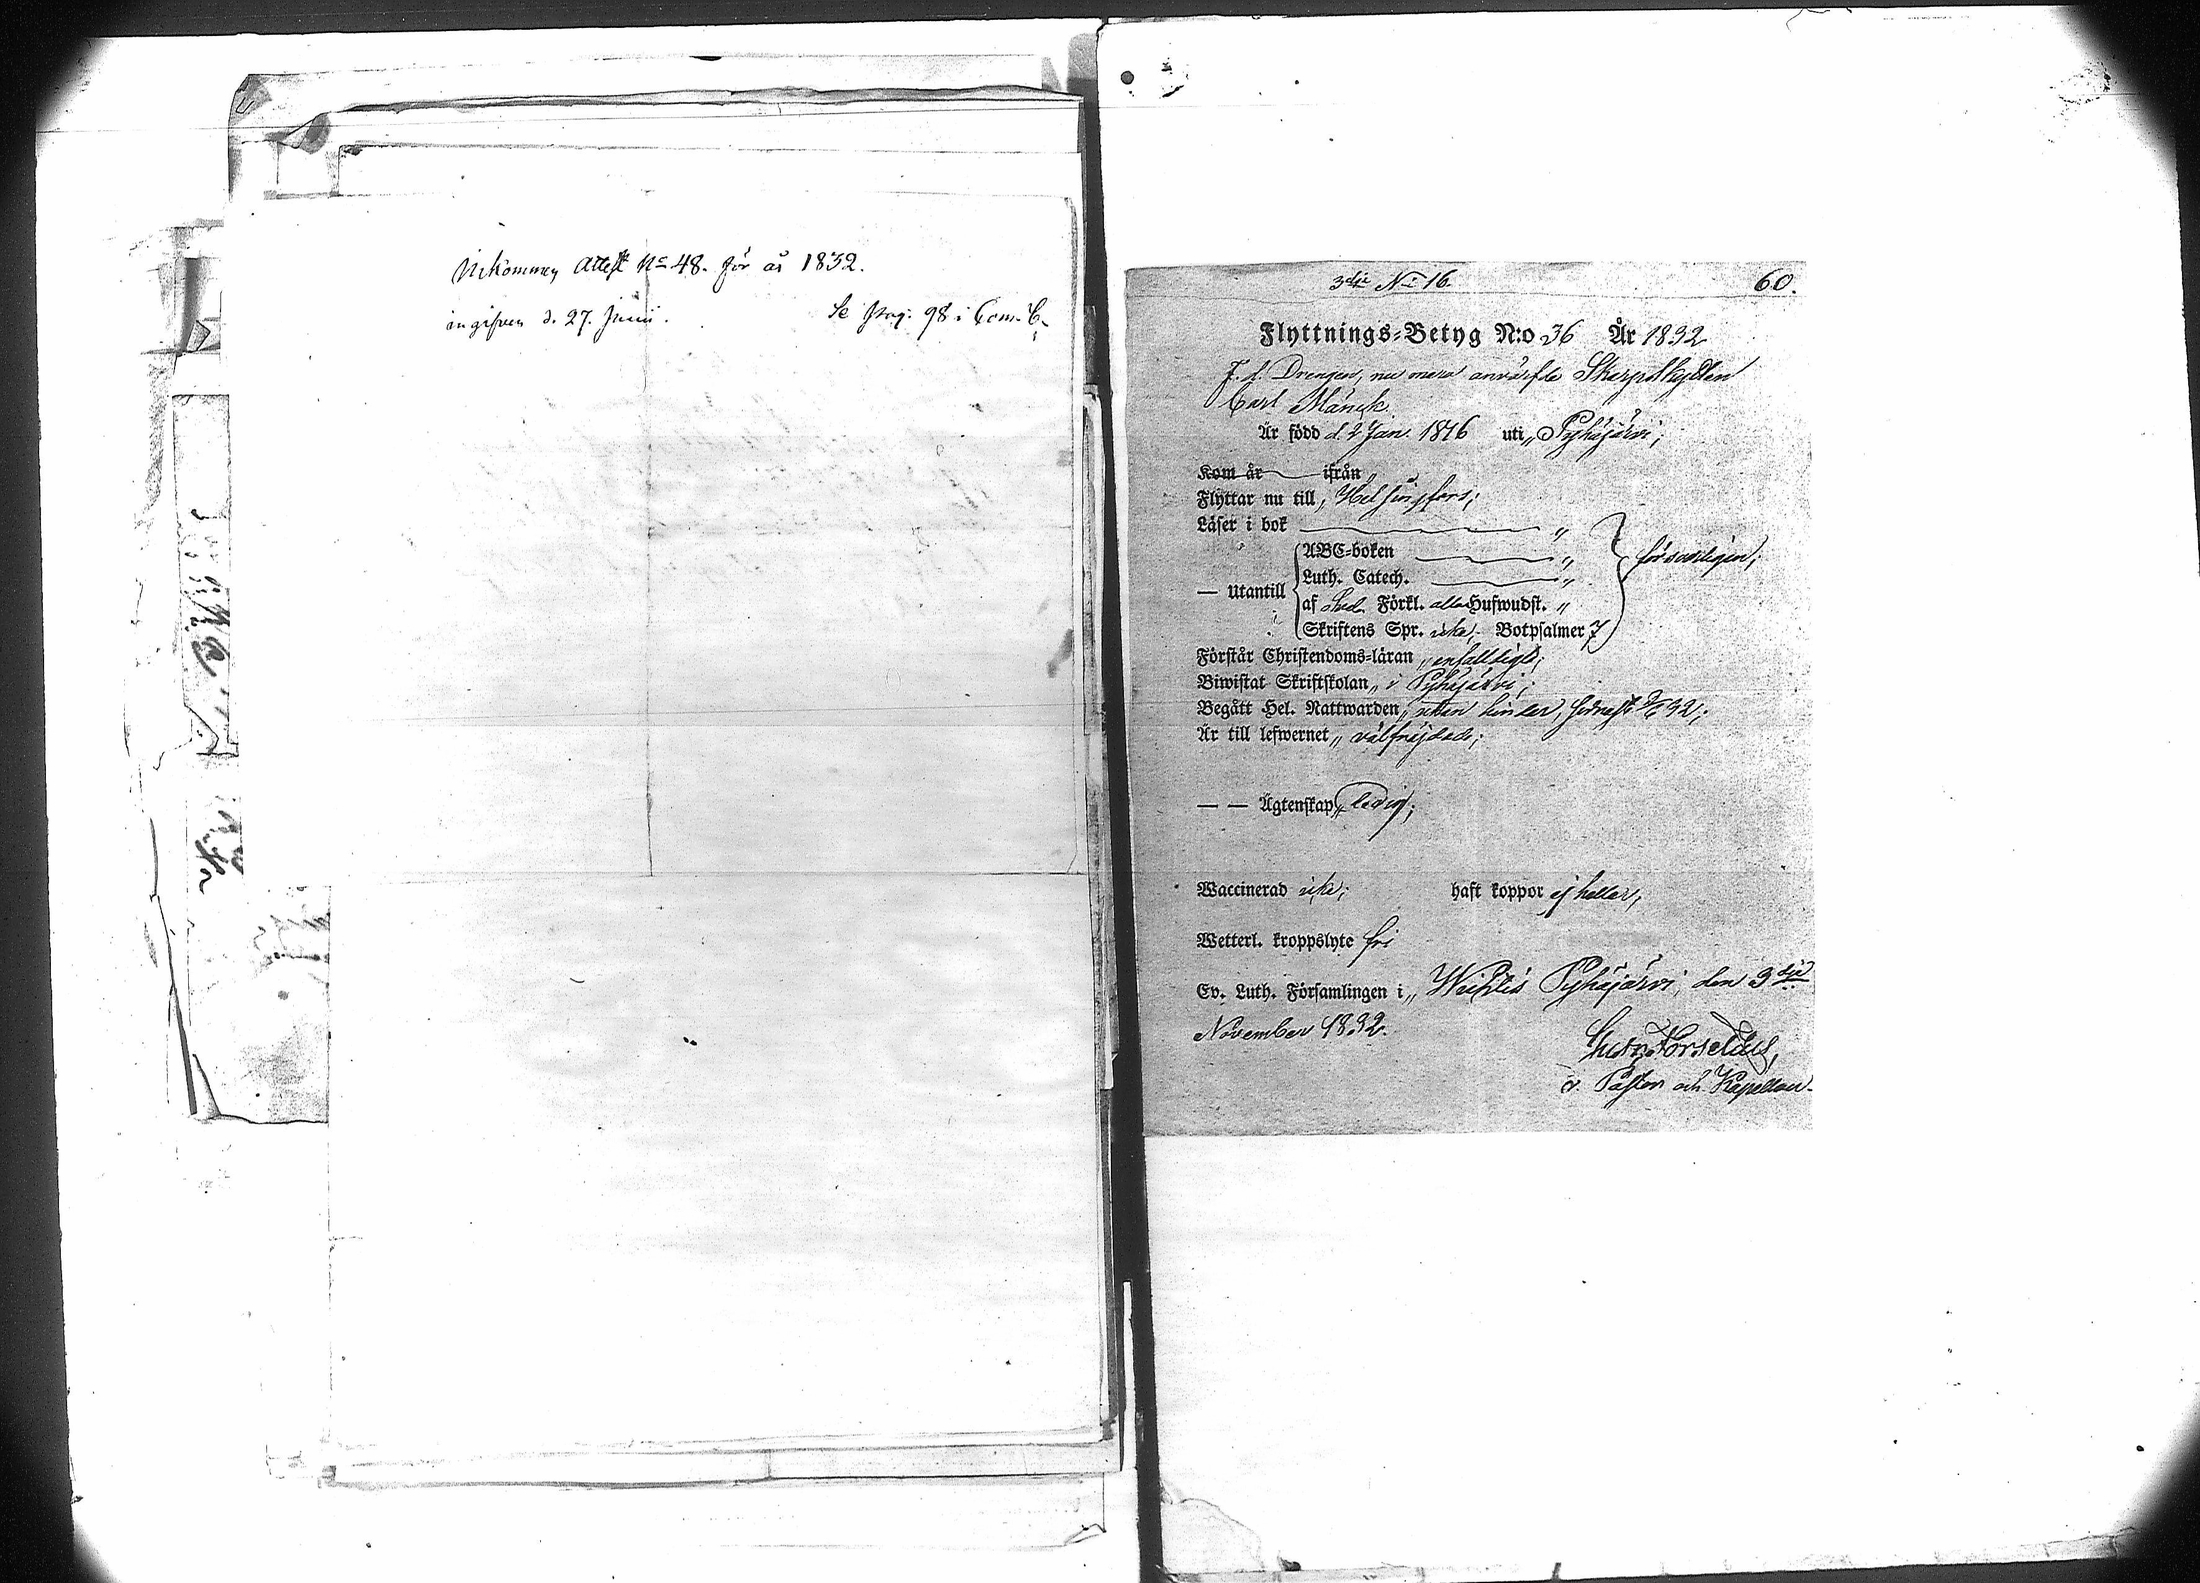 Inkommen Attest No 48. för år 1832.
ingifven d. 27. Junii.
Se pag. 98 i Com. B.
3dje No 16.
60.
Flyttnings-Betyg N:o 36 År 1832
F. d. Drengen, nu mera anvärfde Skarpskytten
Carl Månsk.
Är född d. 2 Jan. 1816 uti „ Pyhäjärvi;
Kom år ifrån
Flyttar nu till, Helsingfors;
Läser i bok „
ABC-boken „
försvarligen;
Luth. Catech. „
— Utantill
af Sved. Förkl. alla Hufwudst. „
Skriftens Spr. icke, Botpsalmer 7
Förstår Christendoms-läran „ enfalldigt;
Biwistat Skriftskolan „ i Pyhäjärvi;
Begått Hel. Nattwarden, utan hinder, sednast 32;
Är till lefwernet „ välfräjdad;
— — Ägtenskap „ ledig;
Waccinerad icke; haft koppor ej heller,
Wetterl. kroppslyte fri
Ev. Luth. Församlingen i „ Wichtis Pyhäjärvi, den 3dje
November 1832.
Gust. Forselius,
v. Pastor och Kapellan.